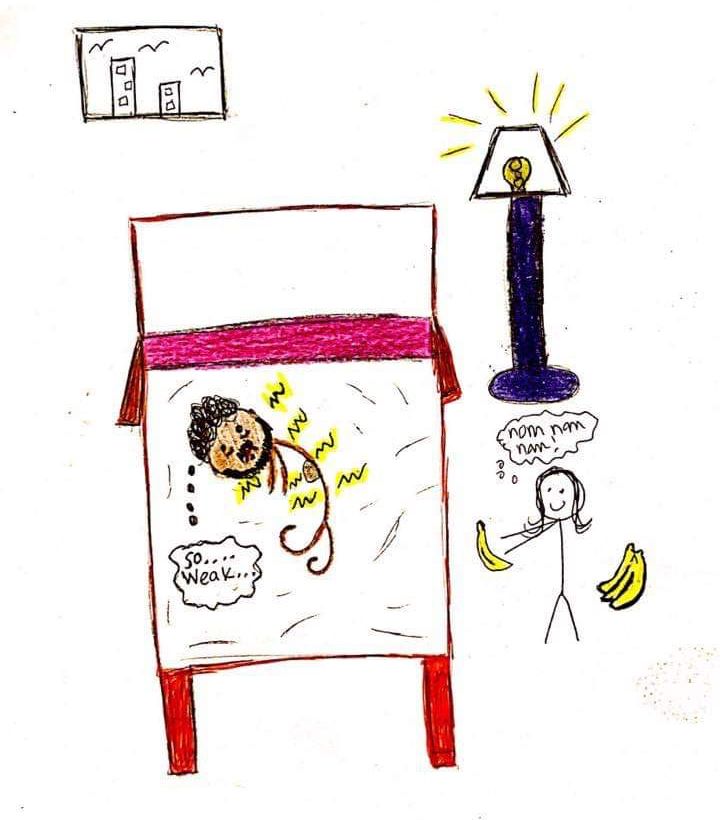 nom nom
nom!
so....
weak...